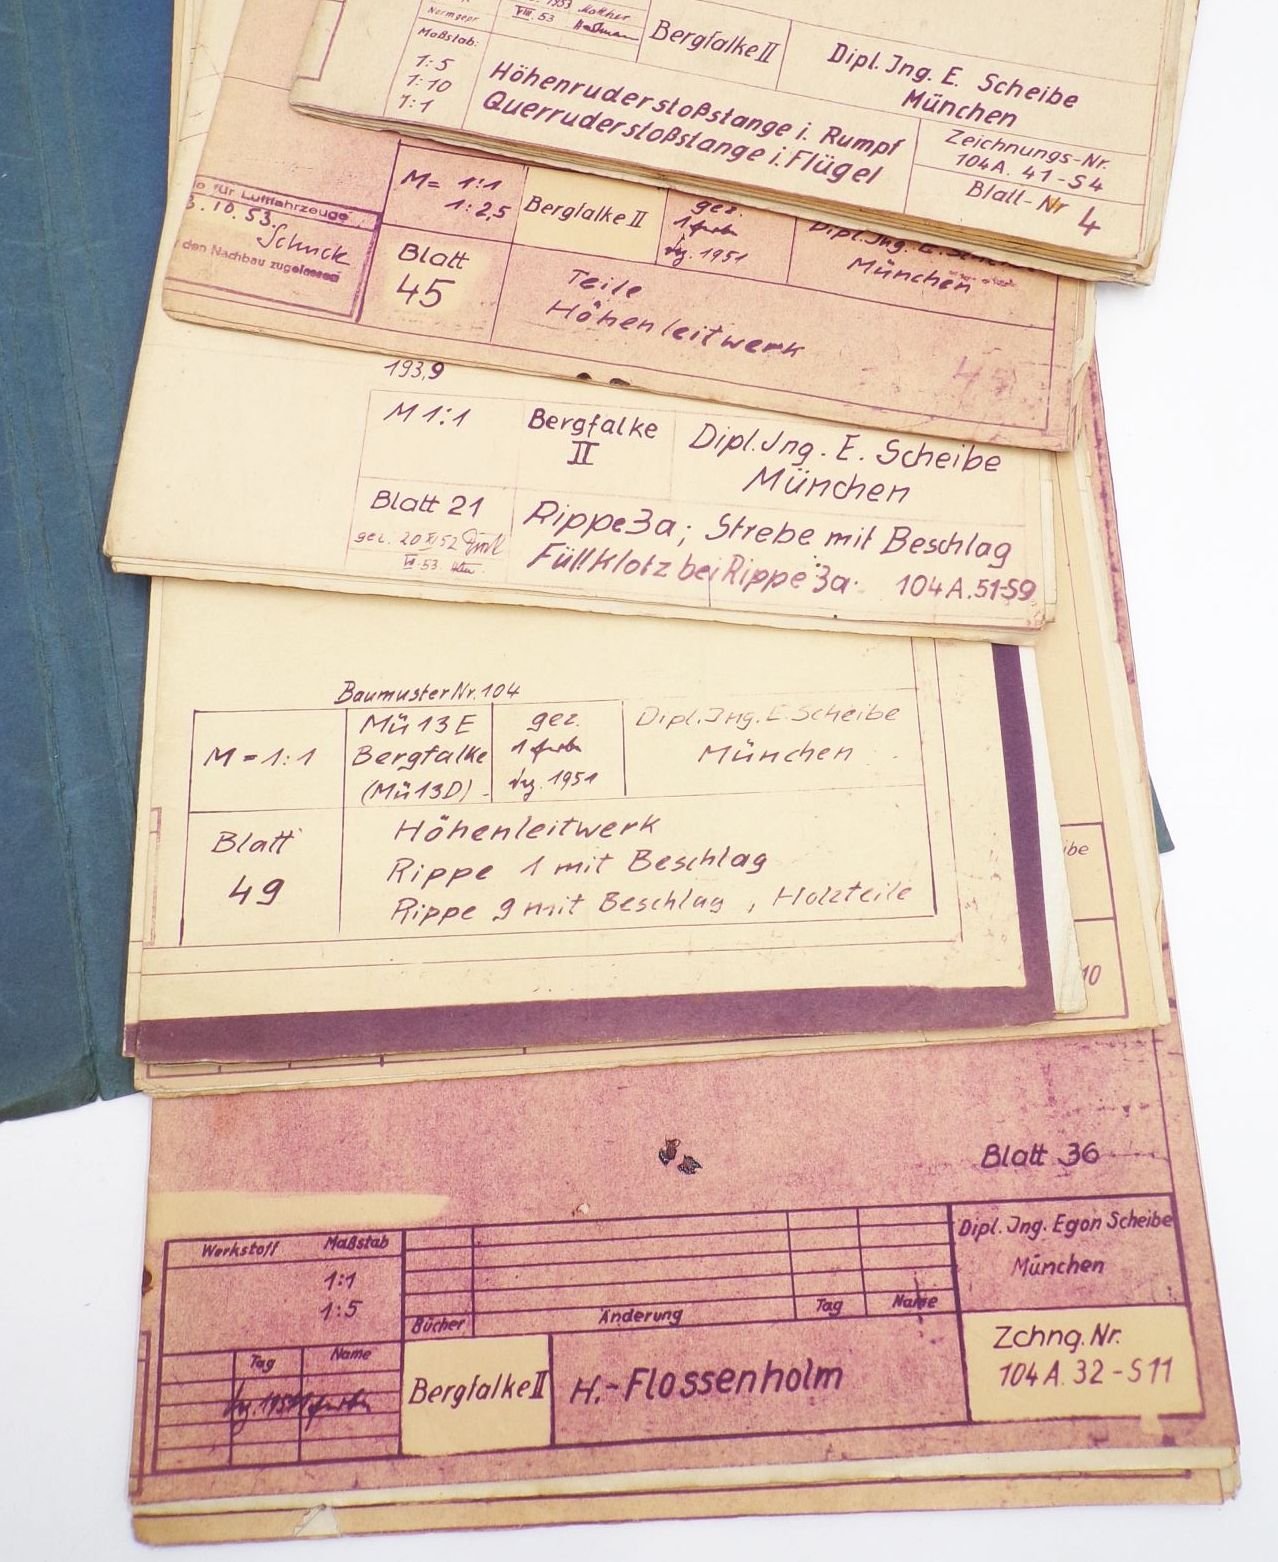 Normgepr.
VII. 53
Maßstab:
1:5
1:10
1:1
Bergfalke II
Dipl. Jng. E. Scheibe
München
Höhenruderstoßstange i. Rumpf
Querruderstoßstange i. Flügel
Zeichnungs-Nr.
104A. 41-S4
Blatt-Nr 4
für Luftfahrzeuge
3.10.53.
Schuck
den Nachbau zugelassen
M= 1:1
1:2,5
Bergfalke II
gez.
1951
Dipl. Jng. E.
München
Blatt
45
Teile
Höhenleitwerk
45
193,9
M 1:1
Bergfalke
II
Dipl. Jng. E. Scheibe
München
Blatt 21
gez. 20 XI 52
VII. 53
Rippe 3a; Strebe mit Beschlag
Füllklotz bei Rippe 3a. 104A.51-S9
Baumuster Nr. 104
M = 1:1
Mü 13 E
Bergfalke
(Mü 13D)
gez.
1951
Dipl. Jng. E. Scheibe
München
Blatt
49
Höhenleitwerk
Rippe 1 mit Beschlag
Rippe 9 mit Beschlag, Holzteile
ibe
10
Blatt 36
Werkstoff Maßstab
1:1
1:5
Tag Name
Bücher Änderung Tag Name
Dipl. Jng. Egon Scheibe
München
Bergfalke II
H.-Flossenholm
Zchng. Nr.
104A. 32-S11